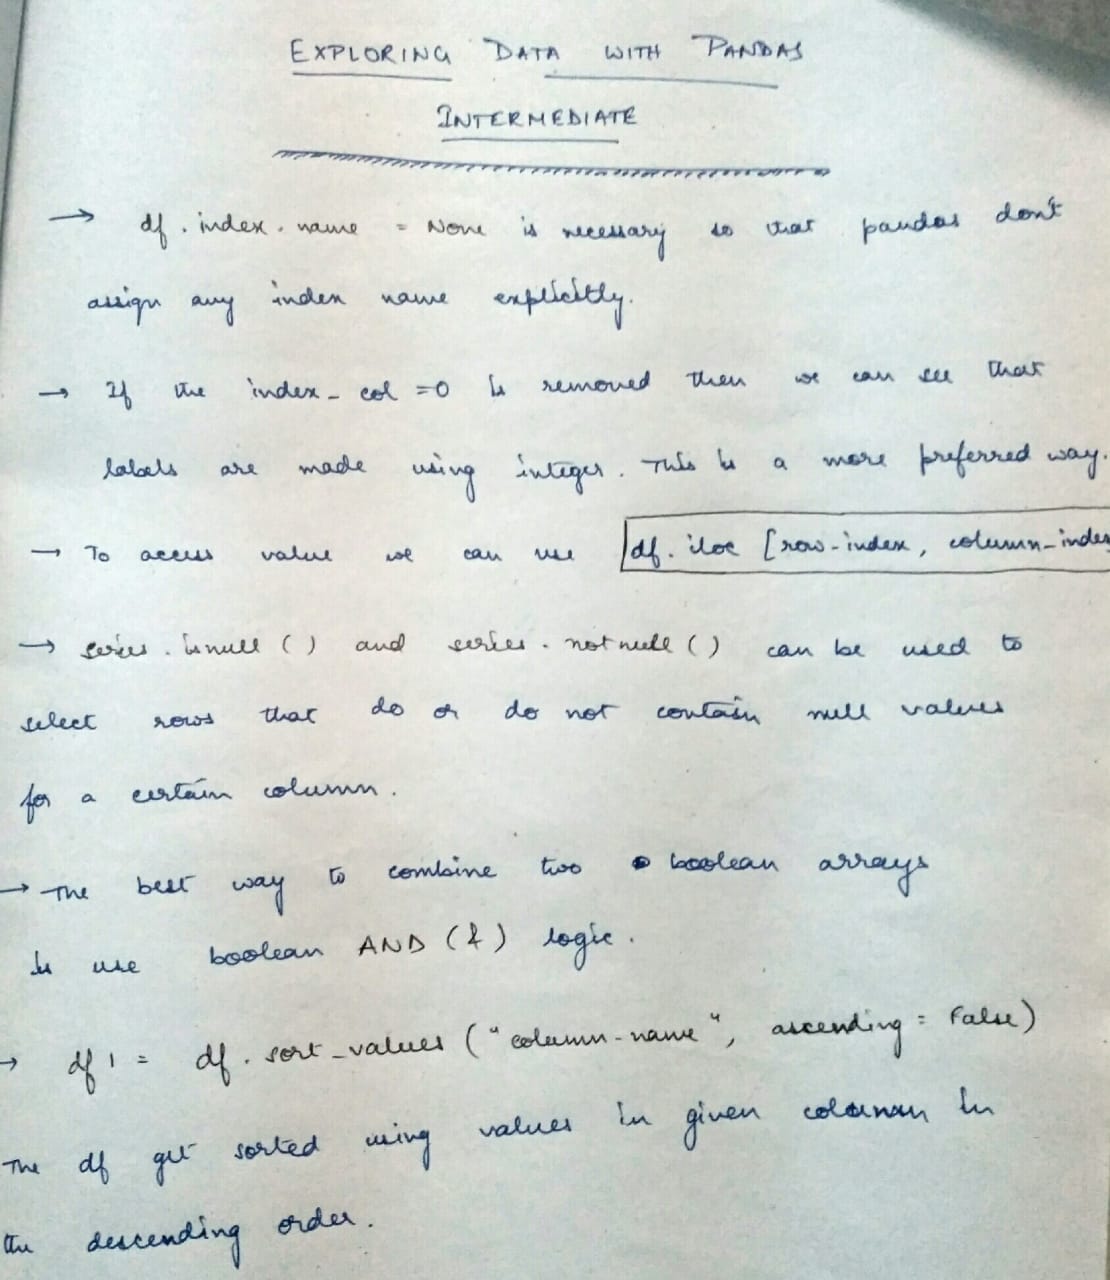 EXPLORING DATA WITH PANDAS
INTERMEDIATE
→ df.index.name = None is necessary so that pandas don't
assign any index name explicitly.
→ If the index_col =0 is removed then we can see that
labels are made using integer. This is a more preferred way.
→ To access value we can use df.iloc [row-index, column-index
→ series.isnull () and series.notnull () can be used to
select rows that do or do not contain null values
for a certain column.
→ The best way to combine two boolean arrays
is use boolean AND (&) logic.
→ df1 = df.sort_values ("column-name", ascending = False)
The df get sorted using values in given column in
the descending order.